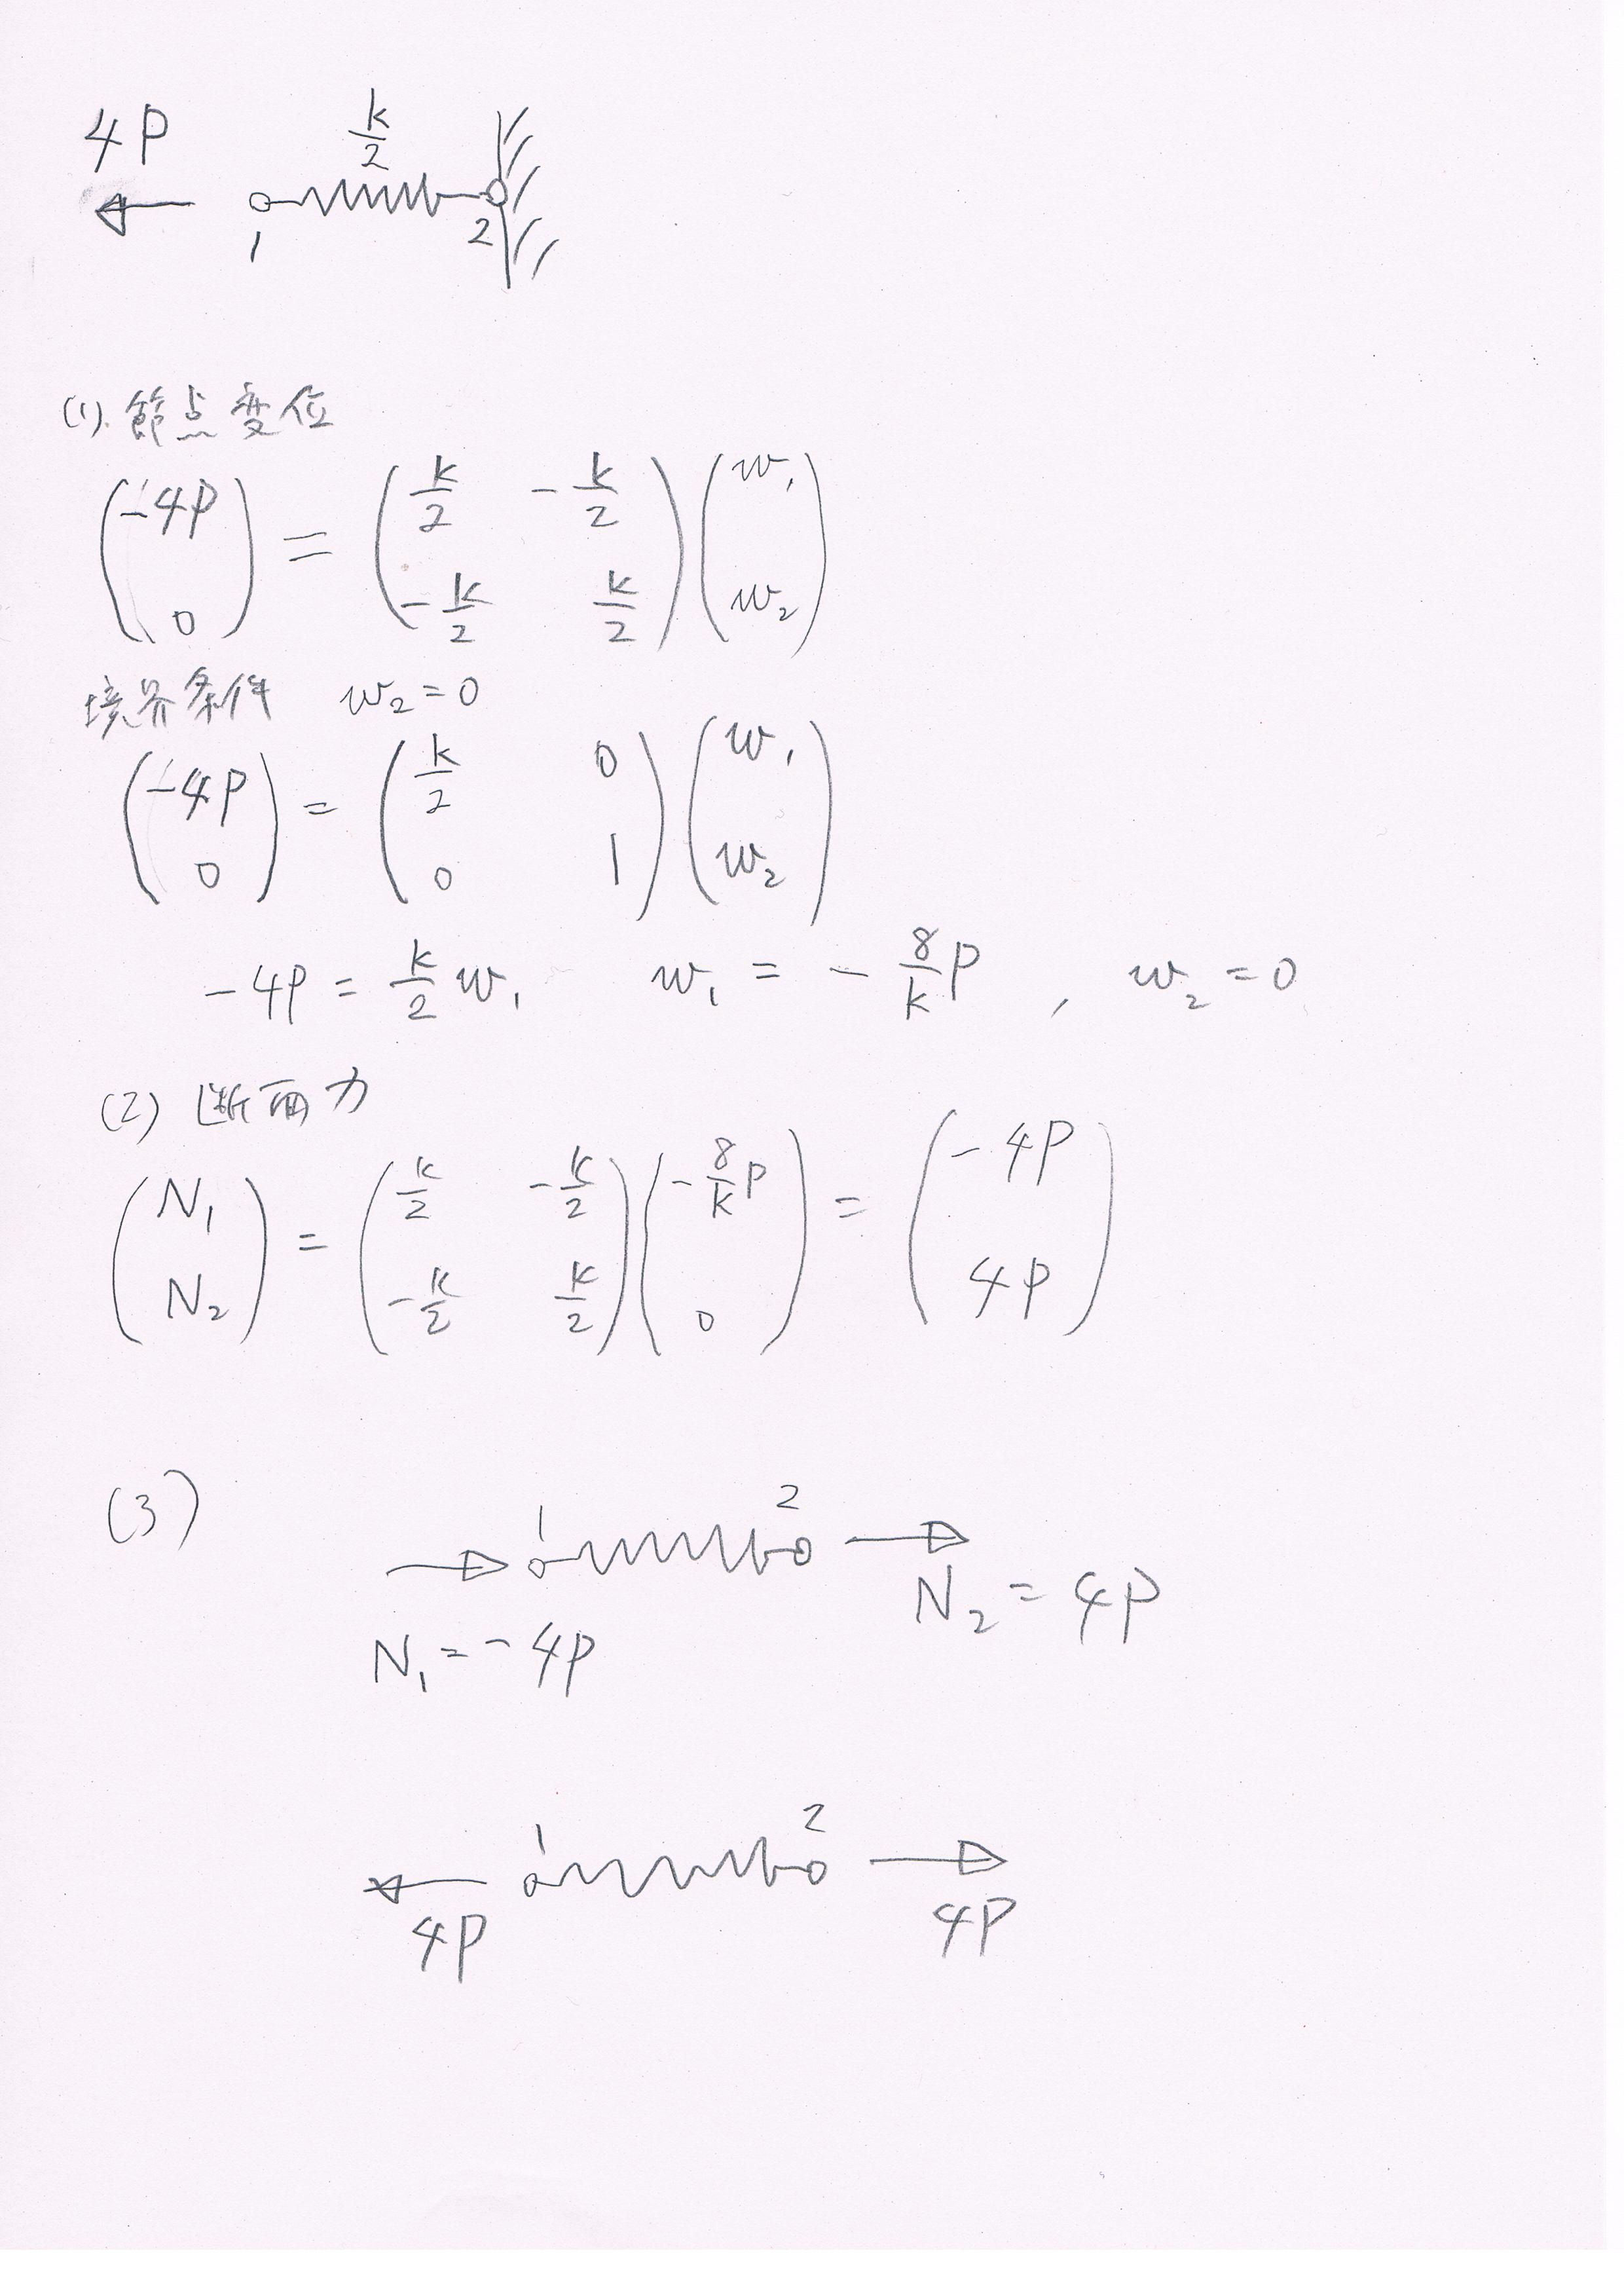 4P
k/2
1 2
(1). 節点変位
(-4P 0) = (k/2 -k/2 -k/2 k/2)(w₁ w₂)
境界条件 w₂=0
(-4P 0) = (k/2 0 0 1)(w₁ w₂)
-4P = k/2 w₁ w₁ = - 8/k P , w₂ = 0
(2) 断面力
(N₁ N₂) = (k/2 -k/2 -k/2 k/2)(-8/k P 0) = (-4P 4P)
(3)
1 2
N₁=-4P N₂=4P
1 2
4P 4P